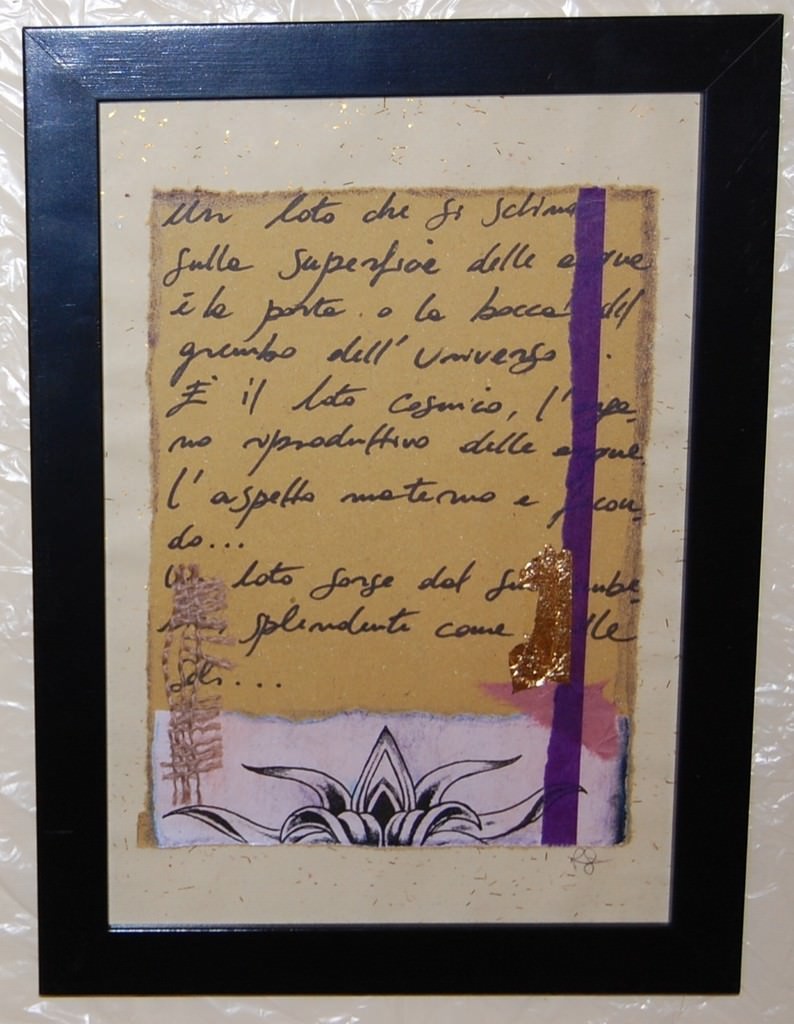 Un loto che si schiude
sulla superficie delle acque
è la porta o la bocca del
grembo dell'Universo.
È il loto cosmico, l'orga-
no riproduttivo delle acque
l'aspetto materno e fecon-
do...
loto sorge dal
splendente come mille
soli...